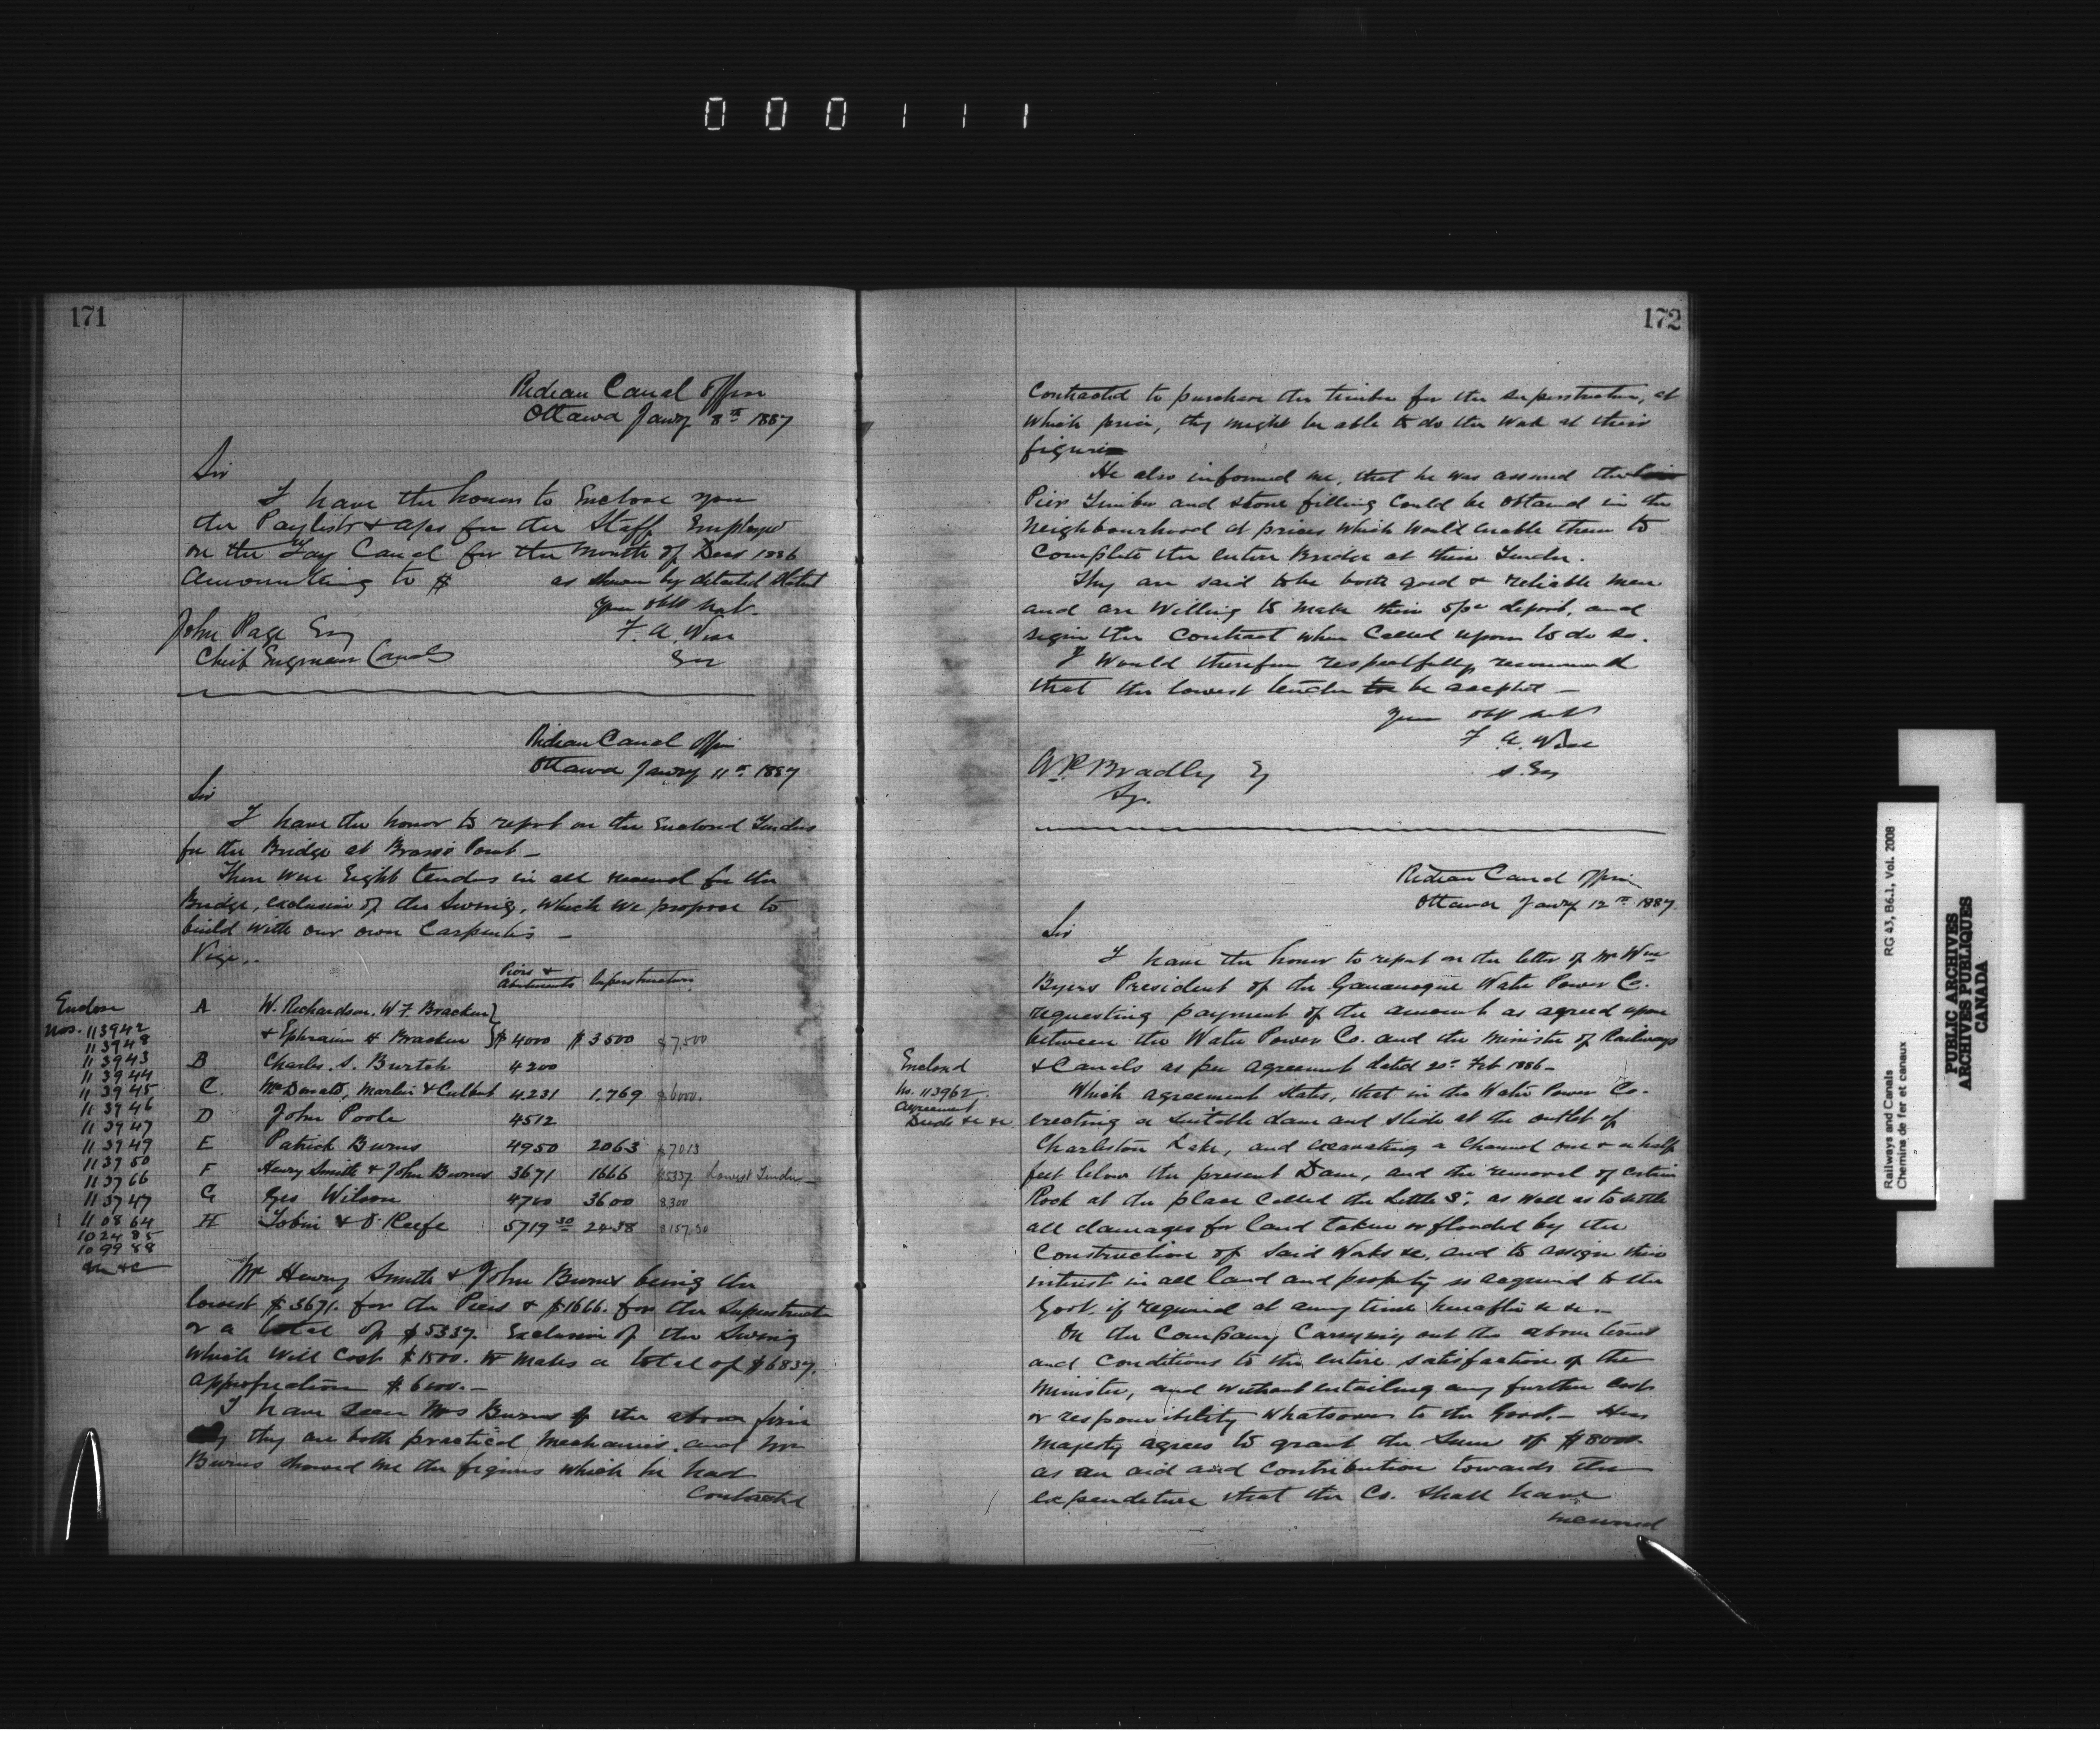 000111
171
Rideau Canal Office
Ottawa Jany 8th 1887
Sir
I have the honor to Enclose you
the Paylists & a/cs for the Staff Employed
on the Tay Canal for the month of Decr 1886
amounting to $ as shown by detailed Statmt
Your obt Srvt.
John Page Esq F. A. Wise
Chief Engineer Canals Eng
Rideau Canal Office
Ottawa Jany 11th 1887
Sir
I have the honor to report on the Enclosed Tenders
for the Bridge at Brass's Point –
There were Eight tenders in all received for the
Bridge, exclusive of the Swing, which we propose to
build with our own Carpenters –
Vizt.
Piers & Abutments Superstructure
Enclose
Nos. 113942
113948
113943
113944
113945
113946
113947
113949
113950
113766
113747
110864
102485
109988
&c &c
A W. Richardson. W F. Bracken
& Ephraim H Bracken $4000 $3500 $7,500
B Charles. S. Burtch 4200
C. McDonald, Martin & Culbert 4231 1.769 $6000.
D John Poole 4512
E Patrick Burns 4950 2063 $7013
F Henry Smith & John Burns 3671 1666 $5337 Lowest Tender –
G Geo Wilson 4700 3600 8300
H Tobin & O'Keefe 5719 30 2438 8157.30
Mr Henry Smith & John Burns being the
lowest $3671. for the Piers & $1666. for the Superstructure
or a total of $5337. Exclusive of the Swing
which will cost $1500. & makes a total of $6837.
appropriation $6000. –
I have seen Mr Burns of the above firm
they are both practical mechanics. and Mr
Burns showed me the figures which he had
Contracted
172
Contracted to purchase the timber for the superstructure, at
which price, they might be able to do the work at their
figures
He also informed me, that he was assured the
Pier Timber and stone filling could be obtained in the
neighbourhood at prices which would enable them to
complete the entire Bridge at their Tender.
They are said to be both good & reliable men
and are willing to make their 5 pc deposit, and
sign the Contract when Called upon to do so.
I would therefore respectfully recommend
that the lowest tender be accepted –
Your obt Srvt
F A. Wise
A.P. Bradley Esq S. Eng
Sy.
Rideau Canal Office
Ottawa Jany 12th 1887.
Sir
I have the honor to report on the letter of Mr Wm
Byers President of the Gananoque Water Power Co.
requesting payment of the amount as agreed upon
between the Water Power Co. and the Minister of Railways
& Canals as per agreement dated 20th Feb 1886 –
Enclosed
No. 113962.
Agreement
Deeds &c &c.
Which agreement states, that in the Water Power Co.
erecting a suitable dam and slide at the outlet of
Charleston Lake, and excavating a Channel one & a half
feet below the present Dam, and the removal of certain
Rock at the place called the Little S; as well as to settle
all damages for land taken or flooded by the
Construction of said Works &c, and to assign their
interest in all land and property so acquired to the
Govt. if required at any time hereafter &c &c –
On the Company Carrying out the above terms
and conditions to the entire satisfaction of the
Minister, and without entailing any further cost
or responsibility whatsoever to the Govt. – Her
Majesty agrees to grant the Sum of $8000.
as an aid and contribution towards the
expenditure that the Co. shall have
incurred
Railways and Canals
Chemins de fer et canaux
RG 43, B6.1, Vol. 2008
PUBLIC ARCHIVES
ARCHIVES PUBLIQUES
CANADA